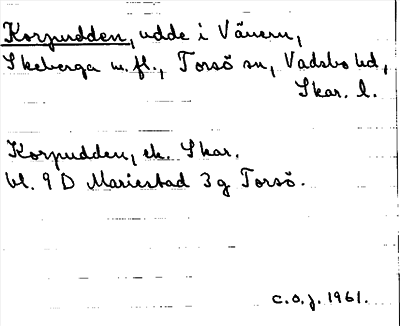 Korpudden, udde i Vänern,
Skeberga m.fl., Torsö sn, Vadsbo hd,
Skar. l.
Korpudden, ek. Skar.
bl. 9 D Mariestad 3 g Torsö.
c.o.j. 1961.